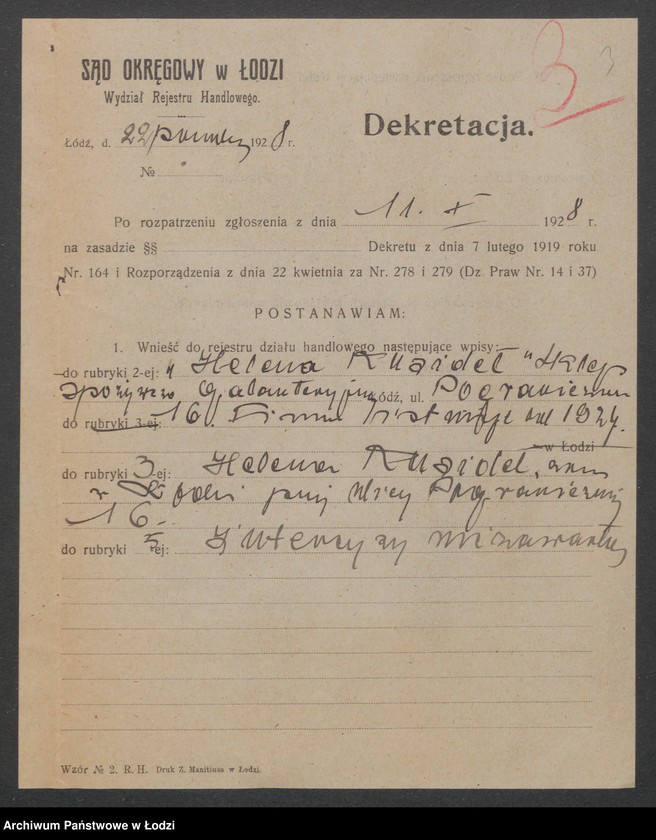 3
3
SĄD OKRĘGOWY w ŁODZI
Wydział Rejestru Handlowego.
Łódź, d. 22 1928 r.
Dekretacja.
№
Po rozpatrzeniu zgłoszenia z dnia 11. X 1928 r.
na zasadzie §§ Dekretu z dnia 7 lutego 1919 roku
Nr. 164 i Rozporządzenia z dnia 22 kwietnia za Nr. 278 i 279 (Dz. Praw Nr. 14 i 37)
POSTANAWIAM:
1. Wnieść do rejestru działu handlowego następujące wpisy:
do rubryki 2-ej: "Helena Kuzideł" Sklep
spożywczo galanteryjny Łódź, ul. Pograniczna
do rubryki 3-ej: 16. Firma istnieje od 1927.
w Łodzi
do rubryki 3-ej: Helena Kuzideł, zam
w Łodzi przy ulicy Pogranicznej
16.
do rubryki 5 ej: Intercyzy nie zawarła
Wzór № 2. R. H. Druk Z. Manitiusa w Łodzi.
Archiwum Państwowe w Łodzi